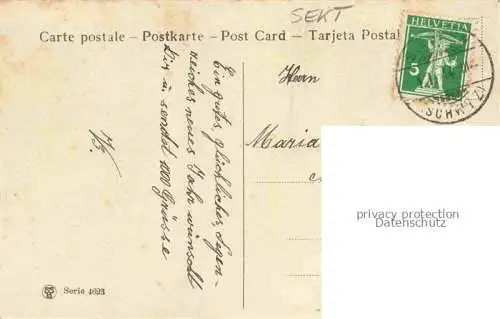 SEKT
Carte postale – Postkarte – Post Card – Tarjeta Postal
HELVETIA
5
(SCHWYZ)
Herrn
Maria
Ein gutes, glückliches, segen-
reiches neues Jahr wünscht
Dir u. sendet 1000 Grüsse
privacy protection
Datenschutz
Serie 4693